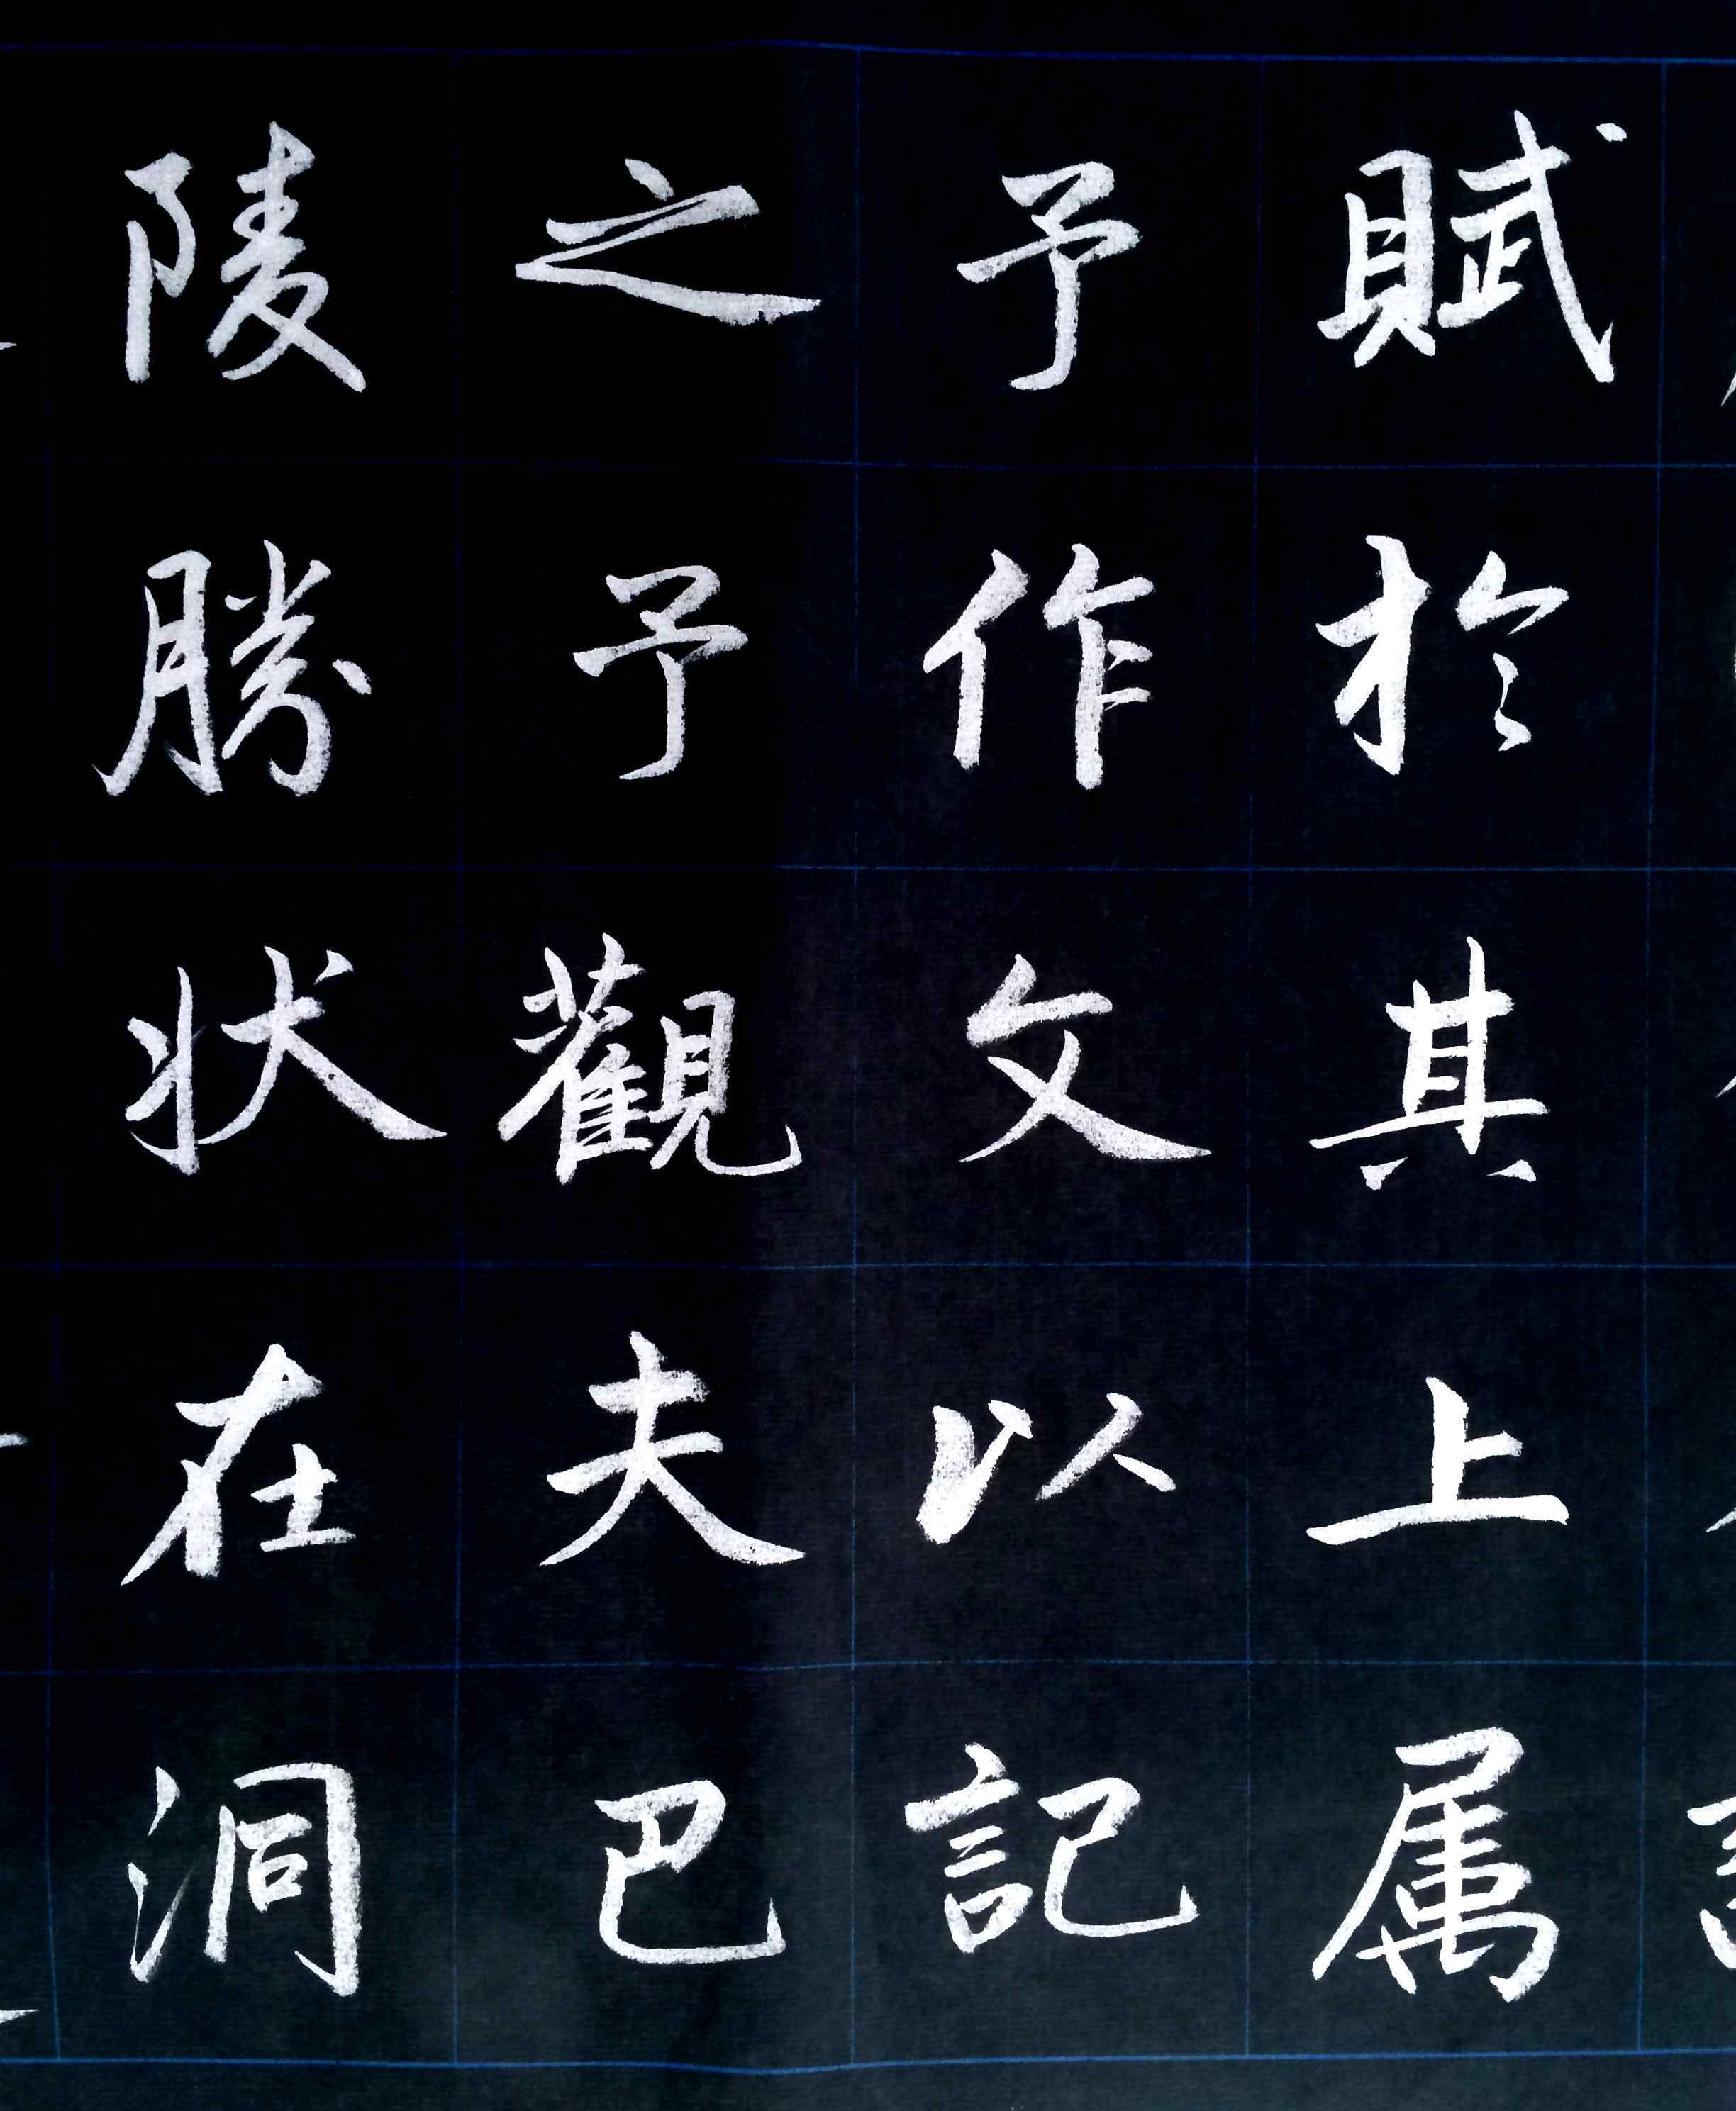 賦於其上属
予作文以記
之予觀夫巴
陵勝状在洞